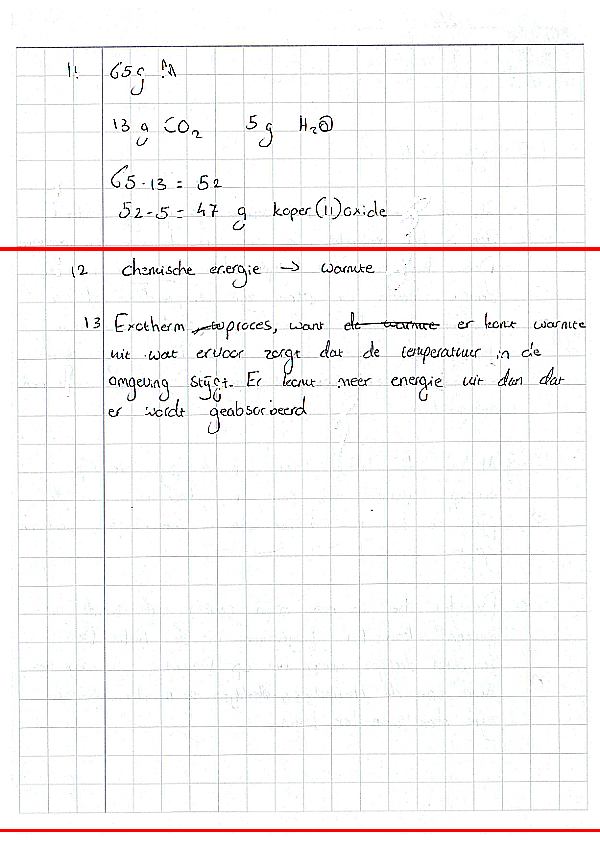 11 65g M
13 g CO₂ 5g H₂O
65-13 = 52
52-5 = 47 g koper(II)oxide
12 chemische energie → warmte
13 Exotherm proces, want de warmte er komt warmte
uit wat ervoor zorgt dat de temperatuur in de
omgeving stijgt. Er komt meer energie uit dan dat
er wordt geabsorbeerd